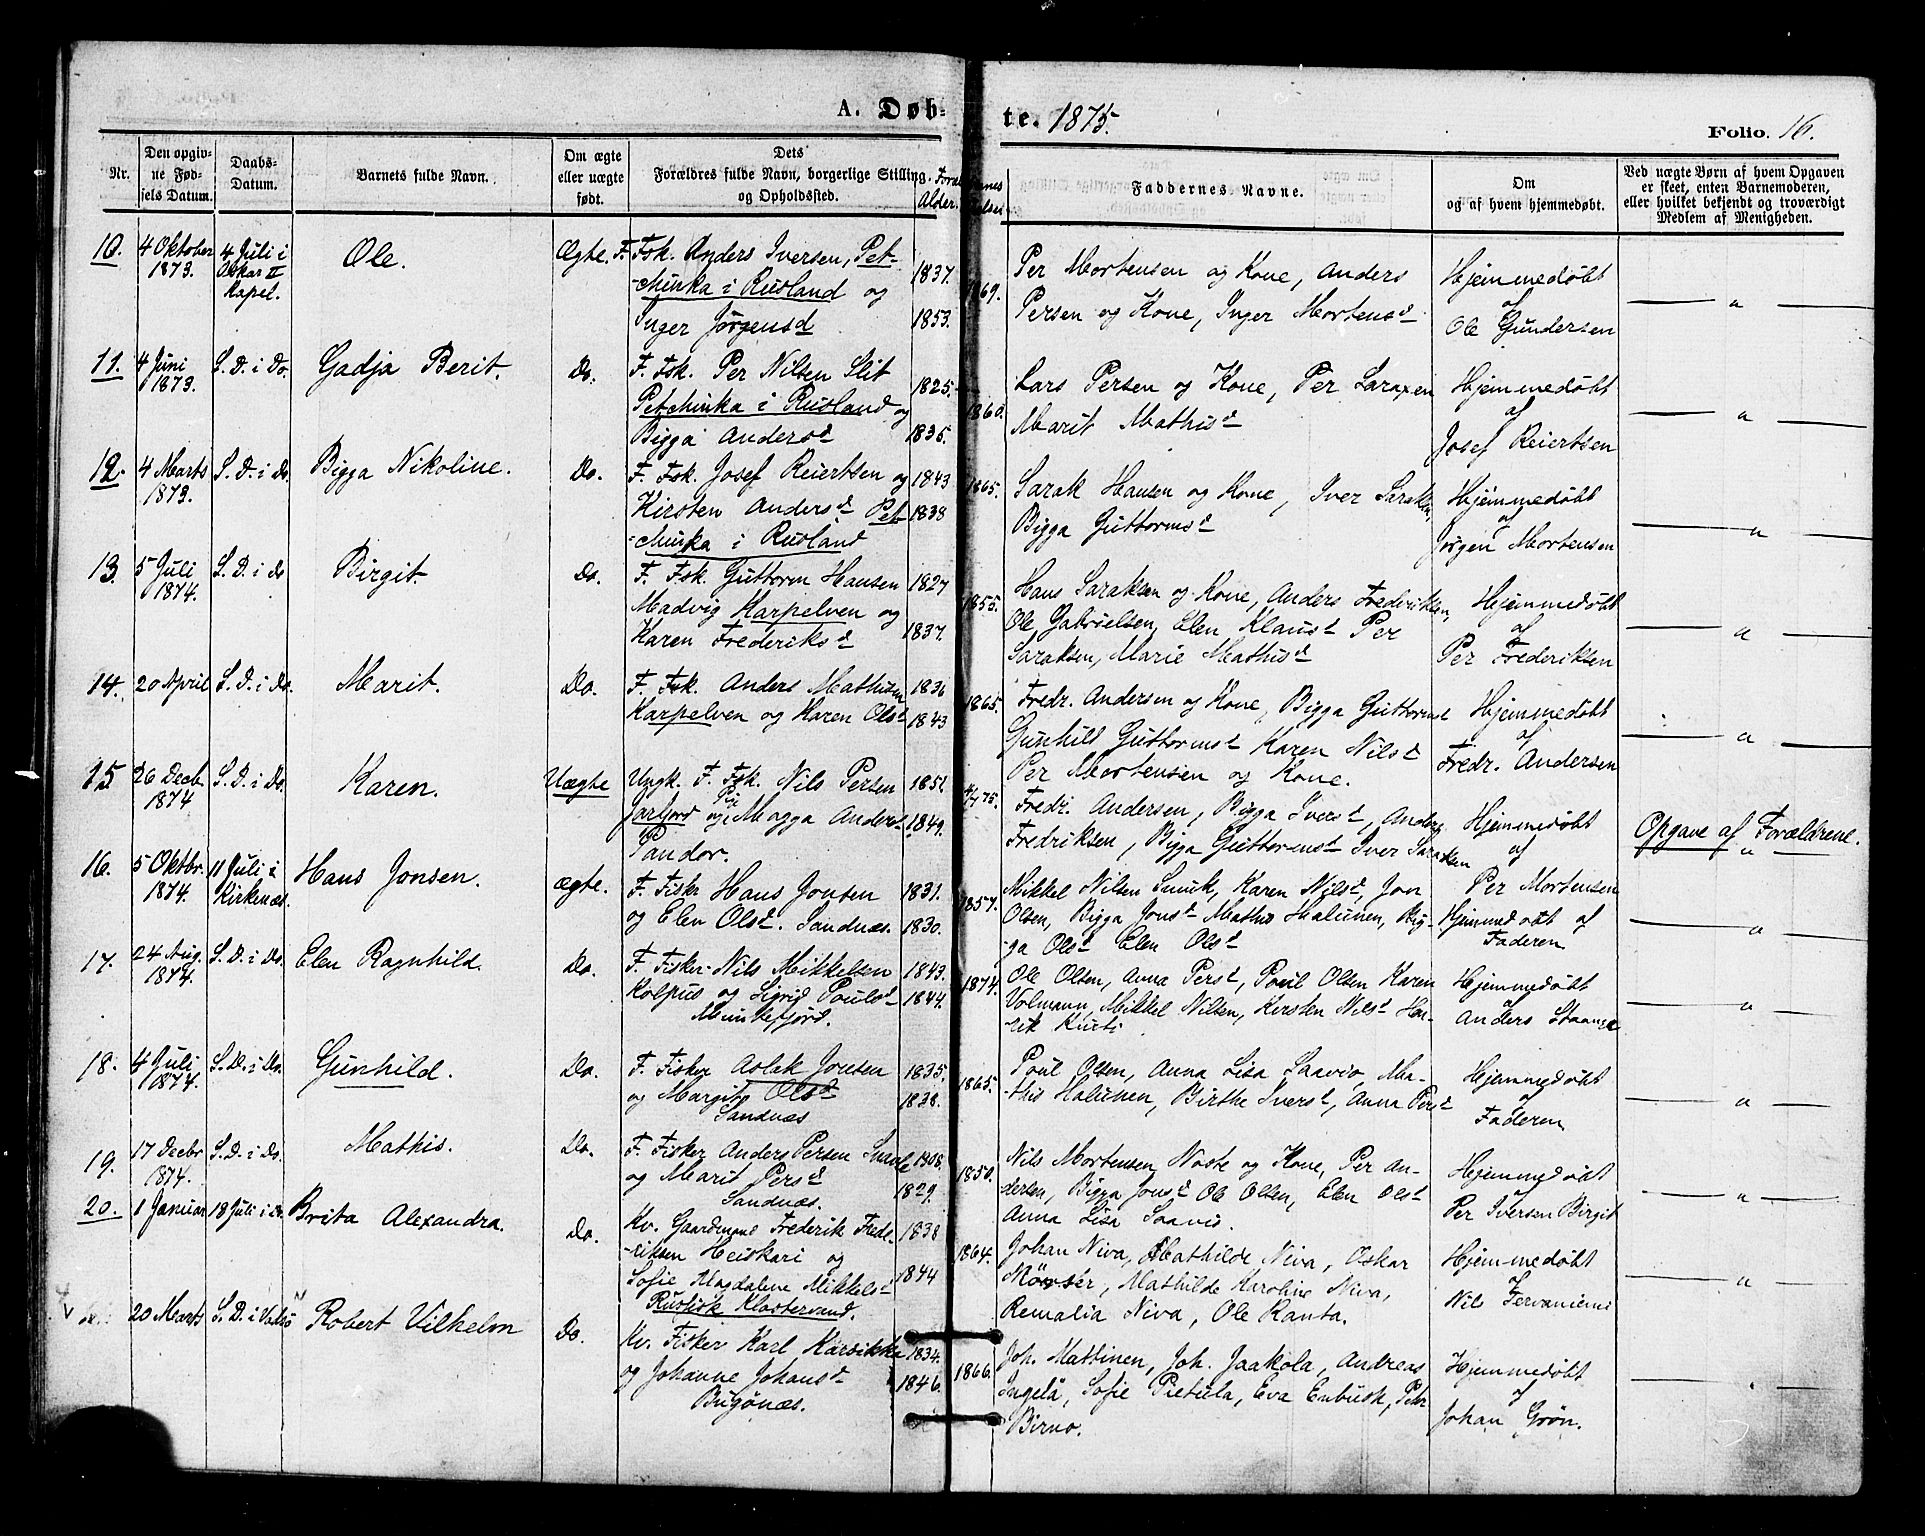 A. Døb-
te. 1875.
Folio. 16.
Nr.
Den opgiv-
ne Fød-
sels Datum.
Daabs-
Datum.
Barnets fulde Navn.
Om ægte
eller uægte
født.
Dets
Forældres fulde Navn, borgerlige Stilling.
og Opholdssted.
Alder.
Faddernes Navne.
Om
og af hvem hjemmedøbt.
Ved uægte Børn af hvem Opgaven
er skeet, enten Barnemoderen,
eller hvilket bekjendt og troværdigt
Medlem af Menigheden.
10. 4 Oktober
1873.
4 Juli i
Oskar II
Kapel.
Ole.
Ægte.
F. Fsk. Anders Iversen, Pet-
-chinka i Rusland og
Inger Jørgensd
1837.
1853.
1869.
Per Mortensen og Kone, Anders
Persen og Kone, Inger Mortensd
Hjemmedøbt
af
Ole Gundersen
"
11. 4 Juni
1873.
S. D. i Do.
Gadja Berit.
Do.
F. Fsk. Per Nilsen Slit
Petchinka i Rusland og
Bigga Andersd
1825.
1835.
1860.
Lars Persen og Kone, Per Saraxen
Marit Mathisd
Hjemmedøbt
af
Josef Reiertsen
"
12. 4 Marts
1873.
S. D. i Do.
Bigga Nikoline.
Do.
F. Fsk. Josef Reiertsen og
Kirsten Andersd Pet-
-chinka i Rusland
1843
1838
1865.
Sarak Hansen og Kone, Iver Saraksen,
Bigga Guttormsd
Hjemmedøbt
af
Jørgen Mortensen
"
13. 5 Juli
1874.
S. D. i do
Birgit.
Do.
F. Fsk. Guttorm Hansen
Madvig Karpelven og
Karen Frederiksd
1827
1837.
1855.
Hans Saraksen og Kone, Anders Frederiksen,
Ole Gabrielsen, Elen Klausd Per
Saraksen, Marie Mathisd
Hjemmedøbt
af
Per Frederiksen
"
14. 20 April
S. D. i Do.
Marit.
Do.
F. Fsk. Anders Mathisen
Karpelven og Karen Olsd
1836
1843
1865.
Fredr. Andersen og Kone, Bigga Guttormsd
Gunhild Guttormsd Karen Nilsd
Per Mortensen og Kone.
Hjemmedøbt
af
Fredr. Andersen
"
15. 26 Decb.
1874
S. D. i Do.
Karen.
Uægte
Ungk. F. Fsk. Nils Persen
Jarfjord og Pig Magga Andersd
Pandor.
1851
1849.
Fredr. Andersen, Bigga Iversd, Anders
Fredriksen, Bigga Guttormsd Iver Saraksen
Hjemmedøbt
af
Per Mortensen
Opgave af Forældrene.
16. 5 Oktbr.
1874.
11 Juli i
Kirkenæs.
Hans Jonsen.
ægte.
F. Fisker Hans Jonsen
og Elen Olsd. Sandnæs.
1831.
1830.
1857.
Mikkel Nilsen Smuk, Karen Nilsd, Jon
Olsen, Bigga Jonsd Mathis Halunen, Big-
-ga Olsd Elen Olsd
Hjemmedøbt af
Faderen
"
17. 24 Aug.
1874.
S. D. i Do.
Elen Ragnhild.
Do.
F. Fisker Nils Mikkelsen
Kolpus og Sigrid Poulsd
Munkefjord.
1843.
1844.
1874.
Ole Olsen, Anna Persd, Poul Olsen Karen
Volmann, Mikkel Nilsen, Kirsten Nilsd Hen-
-rik Kurti
Hjemmedøbt
af
Anders
"
18. 4 Juli
1874.
S. D. i Do.
Gunhild.
Do.
F. Fisker Aslak Jonsen
og Margit Olsd
Sandnæs
1835.
1838.
1865.
Poul Olsen, Anna Lisa Saavio, Ma-
-this Halunen, Birthe Iversd, Anna Persd
Hjemmedøbt
af
Faderen
"
19. 17 Decbr
1874.
S. D. i Do.
Mathis.
Do.
F. Fisker Anders Persen
og Marit Persd
Sandnæs.
1808.
1829.
1850.
Nils Mortensen Noste og Kone, Per An-
dersen, Bigga Jonsd Ole Olsen, Elen Olsd
Anna Lisa Saavio.
Hjemmedøbt
af
Per Iversen Birgit
"
20. 1 Januar
18 Juli i do.
Brita Alexandra.
Do.
Kv. Gaardmand Frederik Frede-
-riksen Heiskari og
Sofie Magdalene Mikkelsd
Russisk Klostervand.
1838
1844
1864.
Johan Niva, Mathilde Niva, Oskar
Mathilde Karoline Niva,
Remalia Niva, Ole Ranta.
Hjemmedøbt
af
Nils Tervaniemi
"
20 Marts
S. D. i Vadsø
Robert Vilhelm
Do.
Kv. Fisker Karl Karsikka
og Johanne Johansd
Bugønæs.
1834.
1846.
1866.
Joh. Mattinen, Joh. Jaakola, Andreas
Ingelå, Sofie Pietula, Eva Enbusk, Peter
Birno.
Hjemmedøbt
af
Johan Grøn.